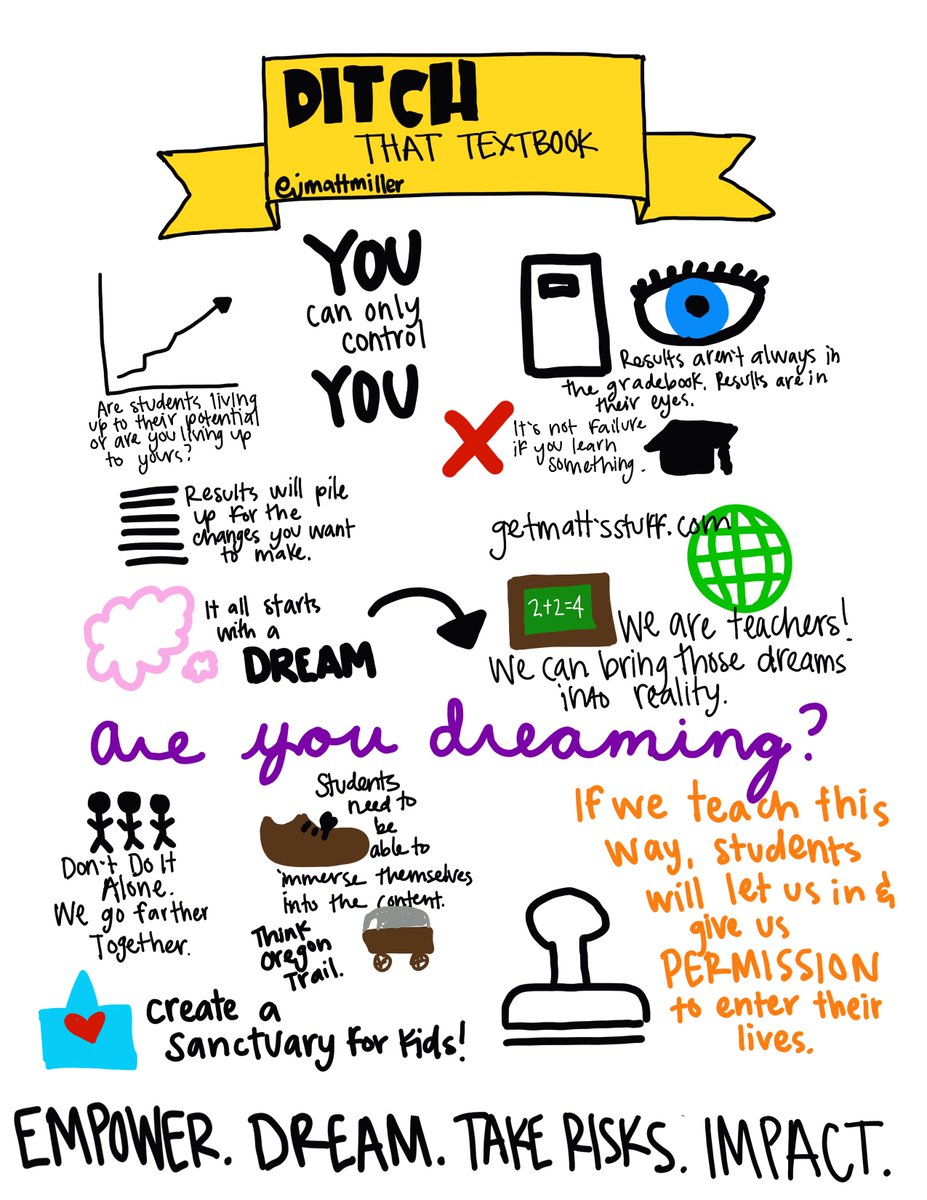 DITCH
THAT TEXTBOOK
@jmattmiller
YOU
can only
control
YOU
Are students living
up to their potential
or are you living up
to yours?
Results aren't always in
the gradebook. Results are in
their eyes.
It's not failure
if you learn
something.
Results will pile
up for the
changes you want
to make.
getmattsstuff.com
It all starts
with a
DREAM
2+2=4
We are teachers!
We can bring those dreams
into reality.
are you dreaming?
Don't Do It
Alone.
We go farther
Together.
Students
need to
be
able to
immerse themselves
into the content.
Think
Oregon
Trail.
If we teach this
way, students
will let us in &
give us
PERMISSION
to enter their
lives.
create a
Sanctuary for Kids!
EMPOWER. DREAM. TAKE RISKS. IMPACT.